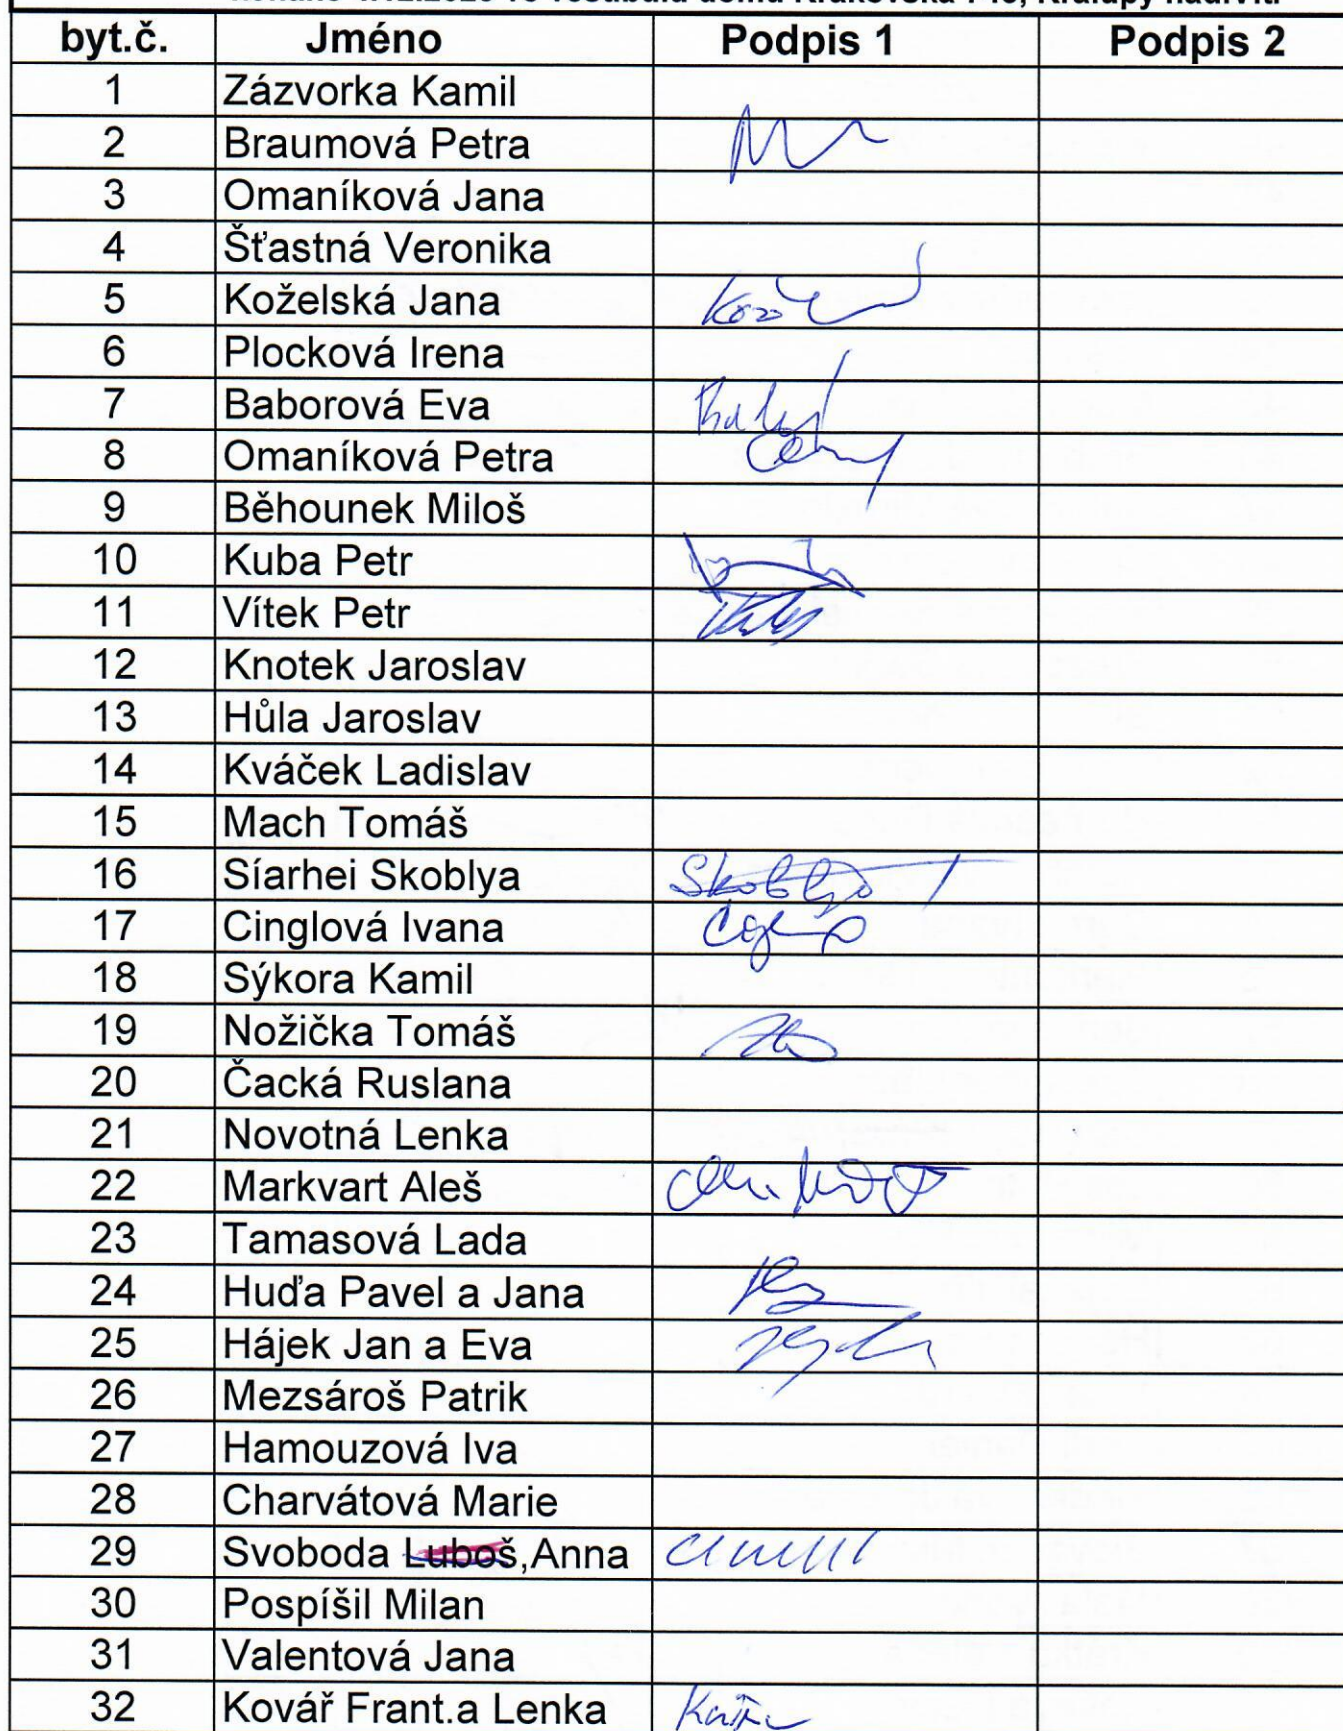 byt.č. Jméno Podpis 1 Podpis 2
1 Zázvorka Kamil
2 Braumová Petra
3 Omaníková Jana
4 Šťastná Veronika
5 Koželská Jana
6 Plocková Irena
7 Baborová Eva
8 Omaníková Petra
9 Běhounek Miloš
10 Kuba Petr
11 Vítek Petr
12 Knotek Jaroslav
13 Hůla Jaroslav
14 Kváček Ladislav
15 Mach Tomáš
16 Síarhei Skoblya Skoblya
17 Cinglová Ivana
18 Sýkora Kamil
19 Nožička Tomáš
20 Čacká Ruslana
21 Novotná Lenka
22 Markvart Aleš
23 Tamasová Lada
24 Huďa Pavel a Jana
25 Hájek Jan a Eva
26 Mezsároš Patrik
27 Hamouzová Iva
28 Charvátová Marie
29 Svoboda Luboš,Anna
30 Pospíšil Milan
31 Valentová Jana
32 Kovář Frant.a Lenka